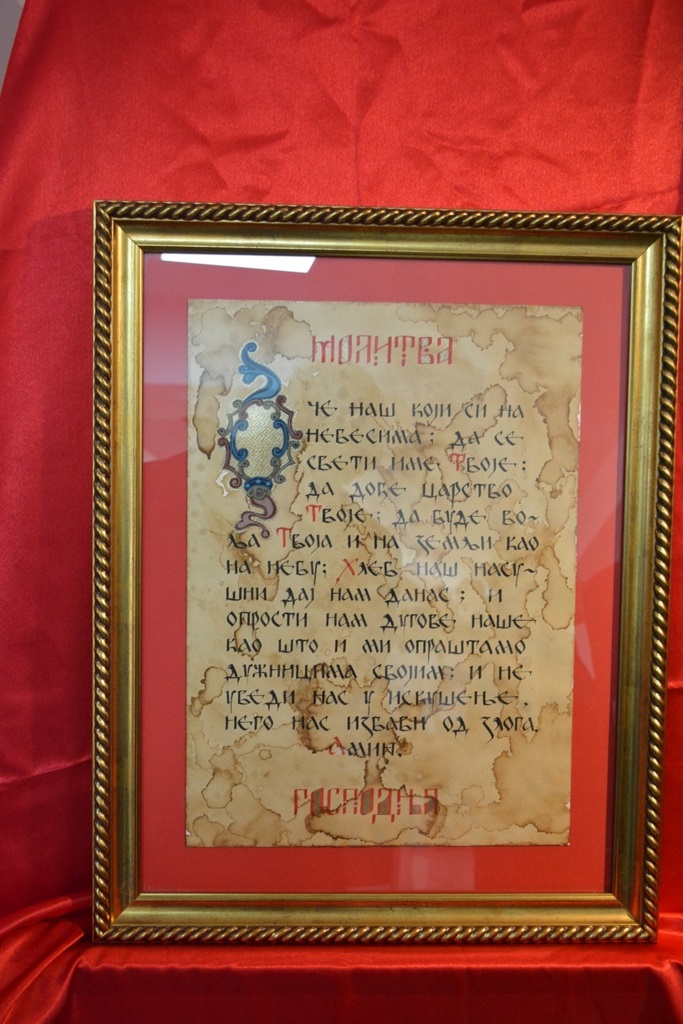 МОЛИТВА
ОЧЕ НАШ КОЈИ СИ НА
НЕБЕСИМА; ДА СЕ
СВЕТИ ИМЕ ТВОЈЕ;
ДА ДОЂЕ ЦАРСТВО
ТВОЈЕ; ДА БУДЕ ВО-
ЉА ТВОЈА И НА ЗЕМЉИ КАО
НА НЕБУ; ХЛЕБ НАШ НАСУ-
ШНИ ДАЈ НАМ ДАНАС; И
ОПРОСТИ НАМ ДУГОВЕ НАШЕ
КАО ШТО И МИ ОПРАШТАМО
ДУЖНИЦИМА СВОЈИМ; И НЕ
УВЕДИ НАС У ИСКУШЕЊЕ,
НЕГО НАС ИЗБАВИ ОД ЗЛОГА.
АМИН.
ГОСПОДЊА